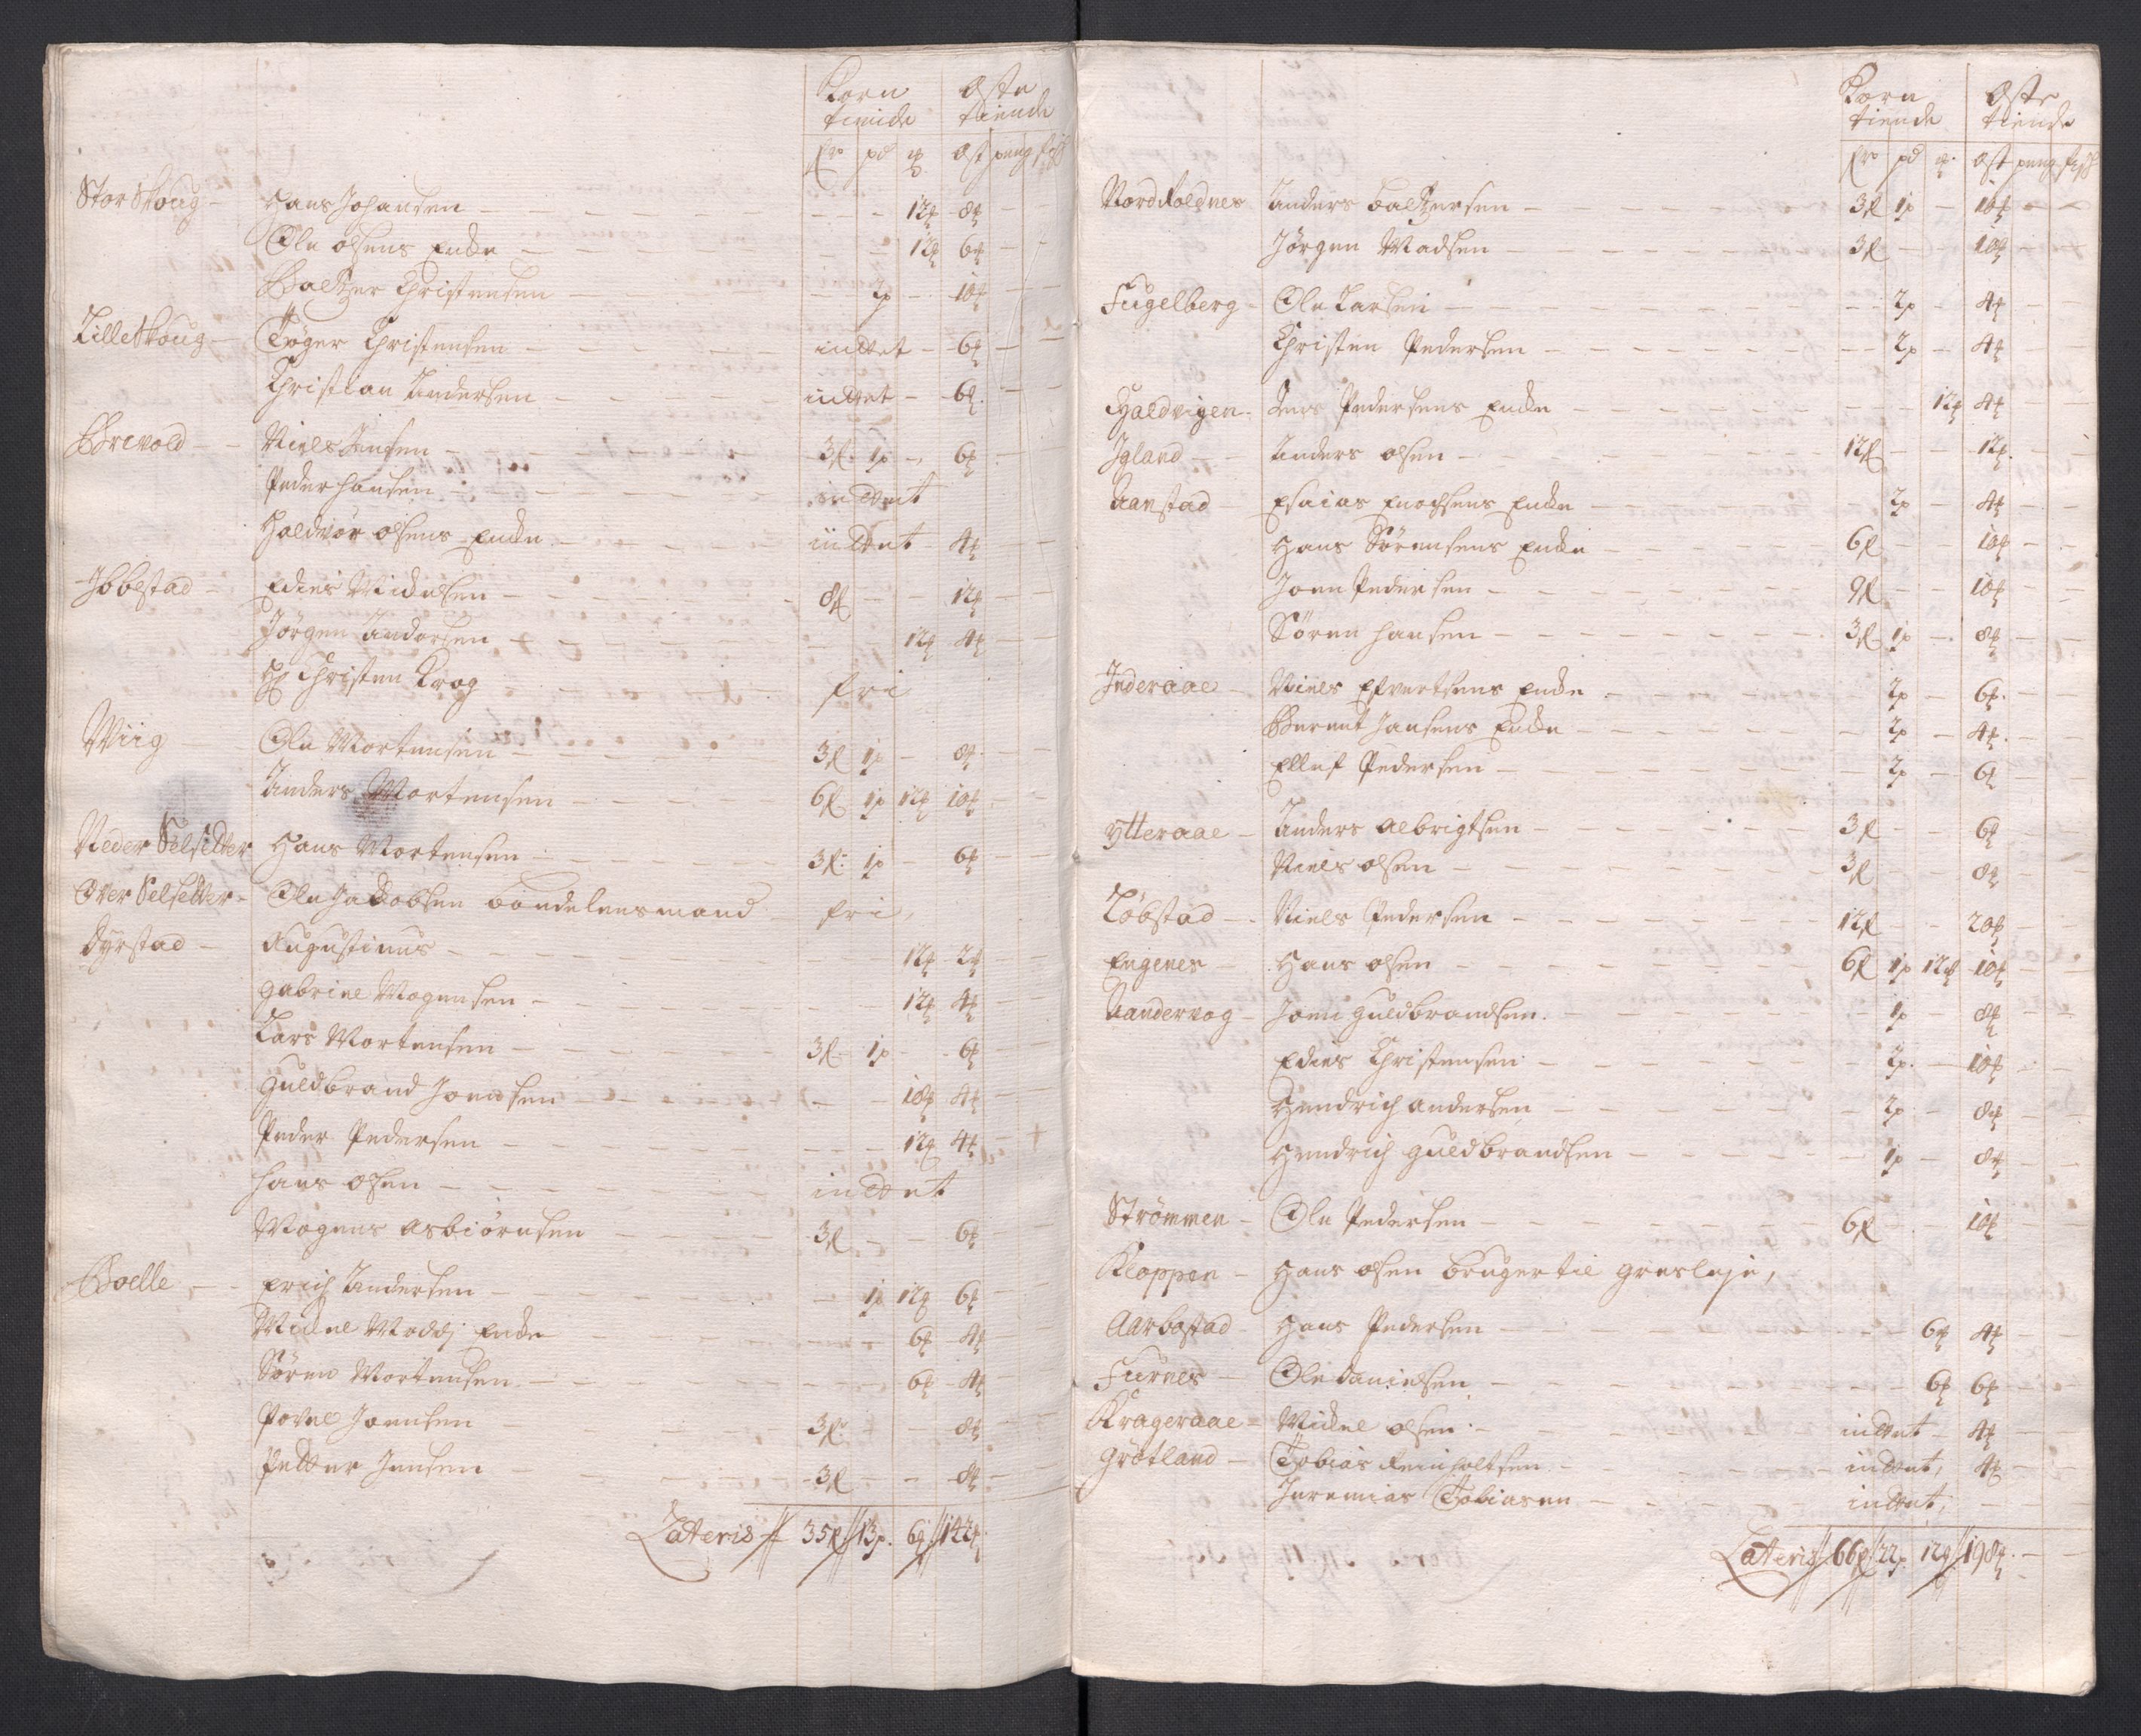 Korn Oste
tiende tiende
pd ost peng fisch
StorSkoug - Hans Johansen - 12 8
Ole olsens Encke - 12 6
Baltzer Christensen - 2p - 10
LilleSkoug - Tøger Christensen - indtet - 6
Christian Andersen - indtet - 6
Brevold - Niels Jensen - 3 1p - 6
Peder hansen - indtet
Haldvor olsens Encke - indtet - 4
Ibbestad - Edies Mickelsen - 8 - 12
Jørgen Andersen - 12 4
Hr Christen Krog - fri
Wiig - Ole Mortensen - 3 1p - 8
Anders Mortensen - 6 1p 12 10
Neder Selsetter Hans Mortensen - 3 1p - 6
Over Selsetter - Ole Jackobsen bondelensmand - fri,
Dyrstad - Augustinus - 12 2
Gabriel Mogensen - 12 4
Lars Mortensen - 3 1p - 6
Guldbrand Joensen - 18 4
Peder Pedersen - 12 4
Hans olsen - indtet
Mogens Asbiørnsen - 3 - 6
Bolle - Erich Andersen - 1p 12 6
Mickel Maddz Encke - 6 4
Søren Mortensen - 6 4
Povel Joensen - 3 - 8
Petter Jensen - 3 - 8
Lateris 35 13p. 6 142
Korn Oste
tiende tiende
pd ost peng fisch
Nord Roldnes Anders Baltzersen - 3 1p - 16
Jørgen Madsen - 3 - 10
Fugelberg - Ole Larsen - 2p - 4
Christen Pedersen - 2p - 4
Haldvigen - Pedersens Encke - 12 4
Igland - Anders olsen - 12 - 12
Aanstad - Esaias Enochsens Encke - 2p - 4
Hans Sørensens Encke - 6 - 10
Joen Pedersen - 9 - 10
Søren hansen - 3 1p - 8
Inderaae - Niels Efvertsens Encke - 2p - 6
Berent Jansens Encke - 2p - 4
Ellef Pedersen - 2p - 6
Ytteraae - Anders Albrigtsen - 3 - 6
Niels olsen - 3 - 8
Løbstad - Niels Pedersen - 12 - 20
Engenes - Hans olsen - 6 1p 12 10
Aandervog - Joen Guldbrandsen - 1p - 8
Edies Christensen - 2p - 10
Hendrich Andersen - 2p - 8
Hendrich Guldbrandsen - 1p - 8
Strømmen - Ole Pedersen - 6 - 10
Kloppen - Hans olsen bruger til gresleje,
Aarbostad - Hans Pedersen - 6 4
Furnes - Ole Danielsen - 6 6
Krageraae - Mickel olsen - indtet - 4
Grøtland - Tobias Reinholtsen - indtet, 4
Jeremias Tobiasen - indtet,
Lateris 66 22p 12 198